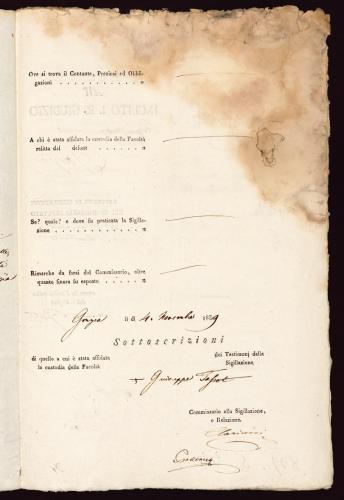 Ove si trova il Contante, Preziosi ed Obbli-
gazioni . . . . . . . . . . . . "
A chi è stata affidata la custodia della Facoltà
relitta dal defont . . . . . . . . "
Se? quale? e dove fu praticata la Sigilla-
zione . . . . . . . . . . . . "
Rimarche da farsi del Commissario, oltre
quanto finora fu esposto . . . . . . "
li di 4. Novembre 1839
Sottoscrizioni
di quello a cui è stata affidata
la custodia della Facoltà
dei Testimonj della
Sigillazione.
+ Giuseppe
Commissario alla Sigillazione,
e Relazione.